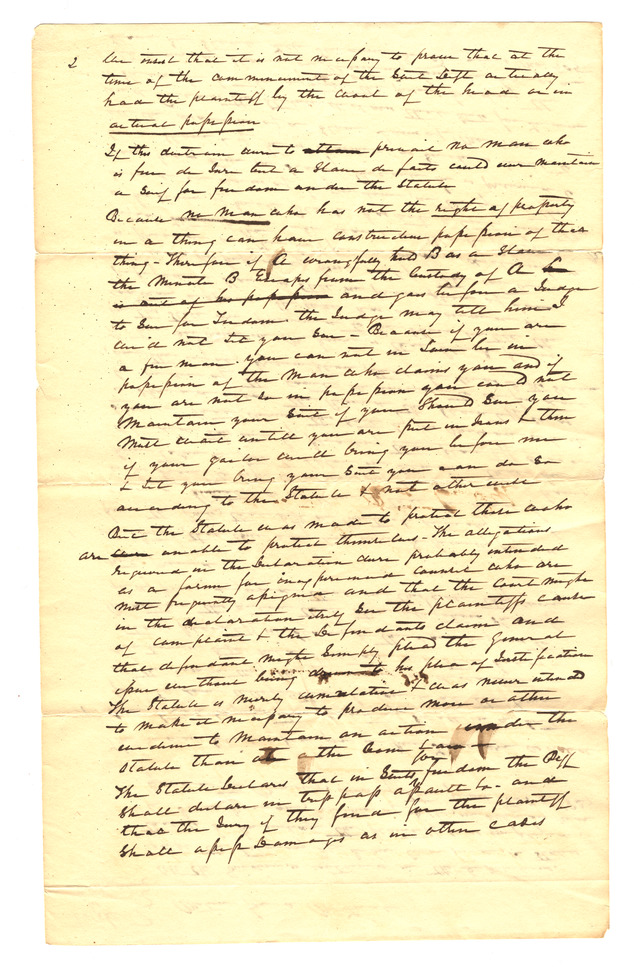 2 We insist that it is not necessary to prove that at the
time of the commencement of the Suit Deft actually
had the plaintiff by the throat of the head or in
actual possession
If this doctrine were to prevail no man who
is free de Jure but a Slave de facto could ever maintain
a Suit for freedom under the Statute
Because no man who has not the right of property
in a thing can have constructive possession of that
thing - Therefore if A wrongfully held B as a Slave
the Minute B Escapes from the Custody of A
is out of his possession and goes before a Judge
to Sue for freedom the Judge may tell him I
can not let you Sue - Because if you are
a free man you can not in Law be in
possession of the Man who claims you and if
you are not so in possession you could not
Maintain your Suit if you Should Sue you
Must wait untill you are put in Irons & then
if your gaolor will bring you before me
& let you bring your Suit you can do So
according to the Statute & not otherwise
But the Statute was made to protect those who
are unable to protect themselves - The allegations
required in the Declaration were probably intended
as a form for inexperienced counsel who are
Most frequently assigned and that the Court might
in the declaration truly See the plaintiffs cause
of complaint & the Defendants claim and
that defendant might Simply plead the general
issue without being to his plea of Justification
The Statute is merely cumulative & was never intended
to make it necessary to produce more or other
evidence to Maintain an action under the
Statute than at the Com Law -
The Statute Declares that in Suits for freedom the Pltff
Shall declare in trespass assault &c - and
that the Jury if they find for the plaintiff
Shall assess Damages as in other cases